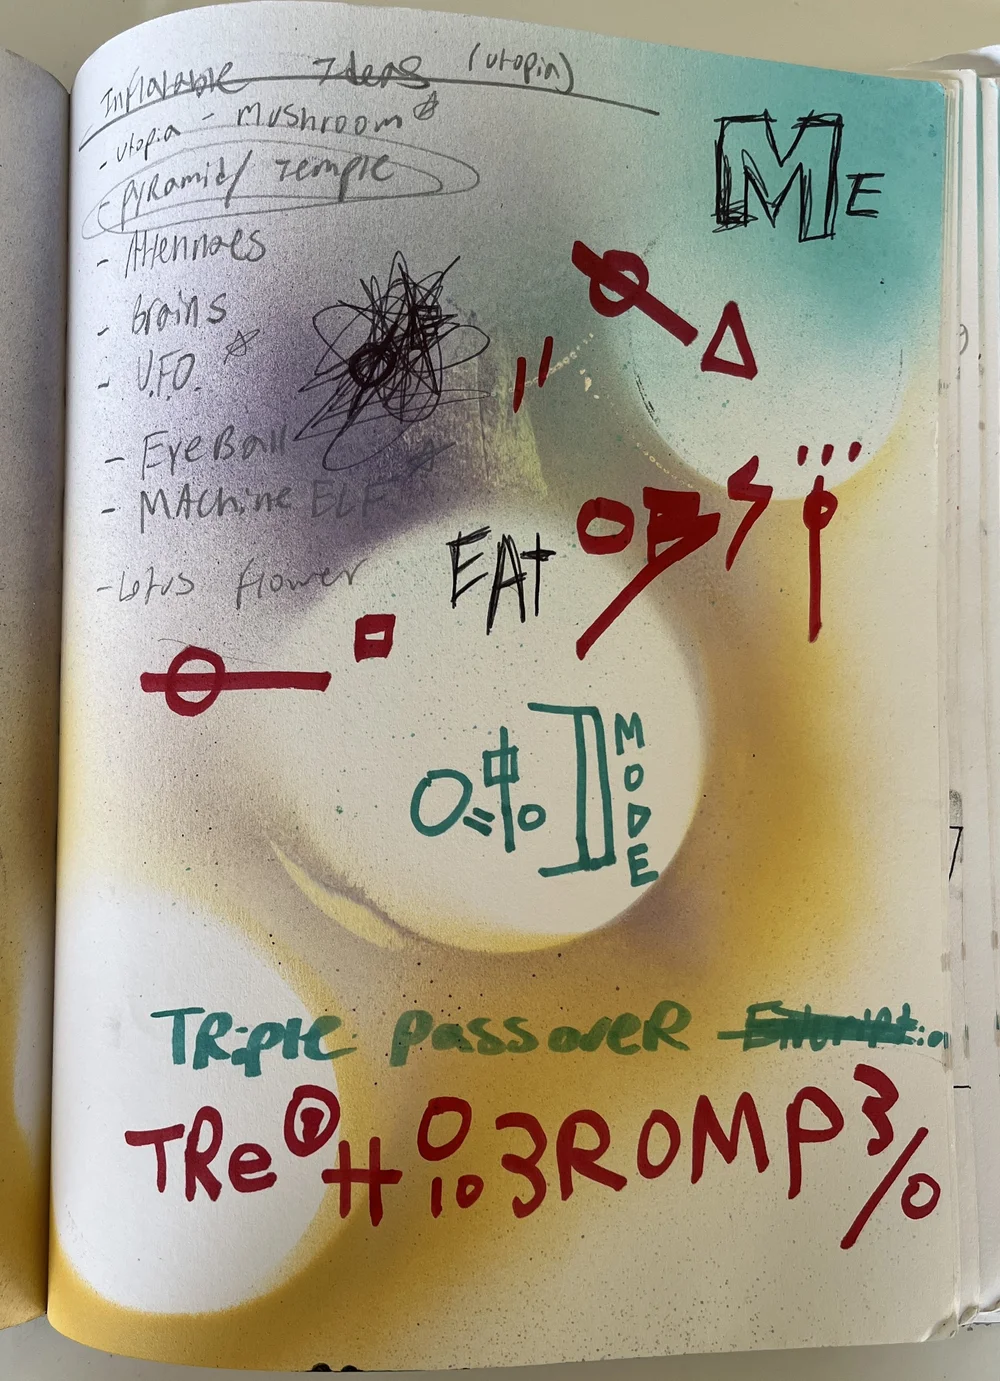 Inflatable Ideas (utopia)
- utopia - Mushroom
- Pyramid/ Temple
- Attennaes
- Brains
- U.F.O.
- EyeBall
- MAChine ELF
- Lotus flower
ME
EAt
MODE
TRiple passoveR